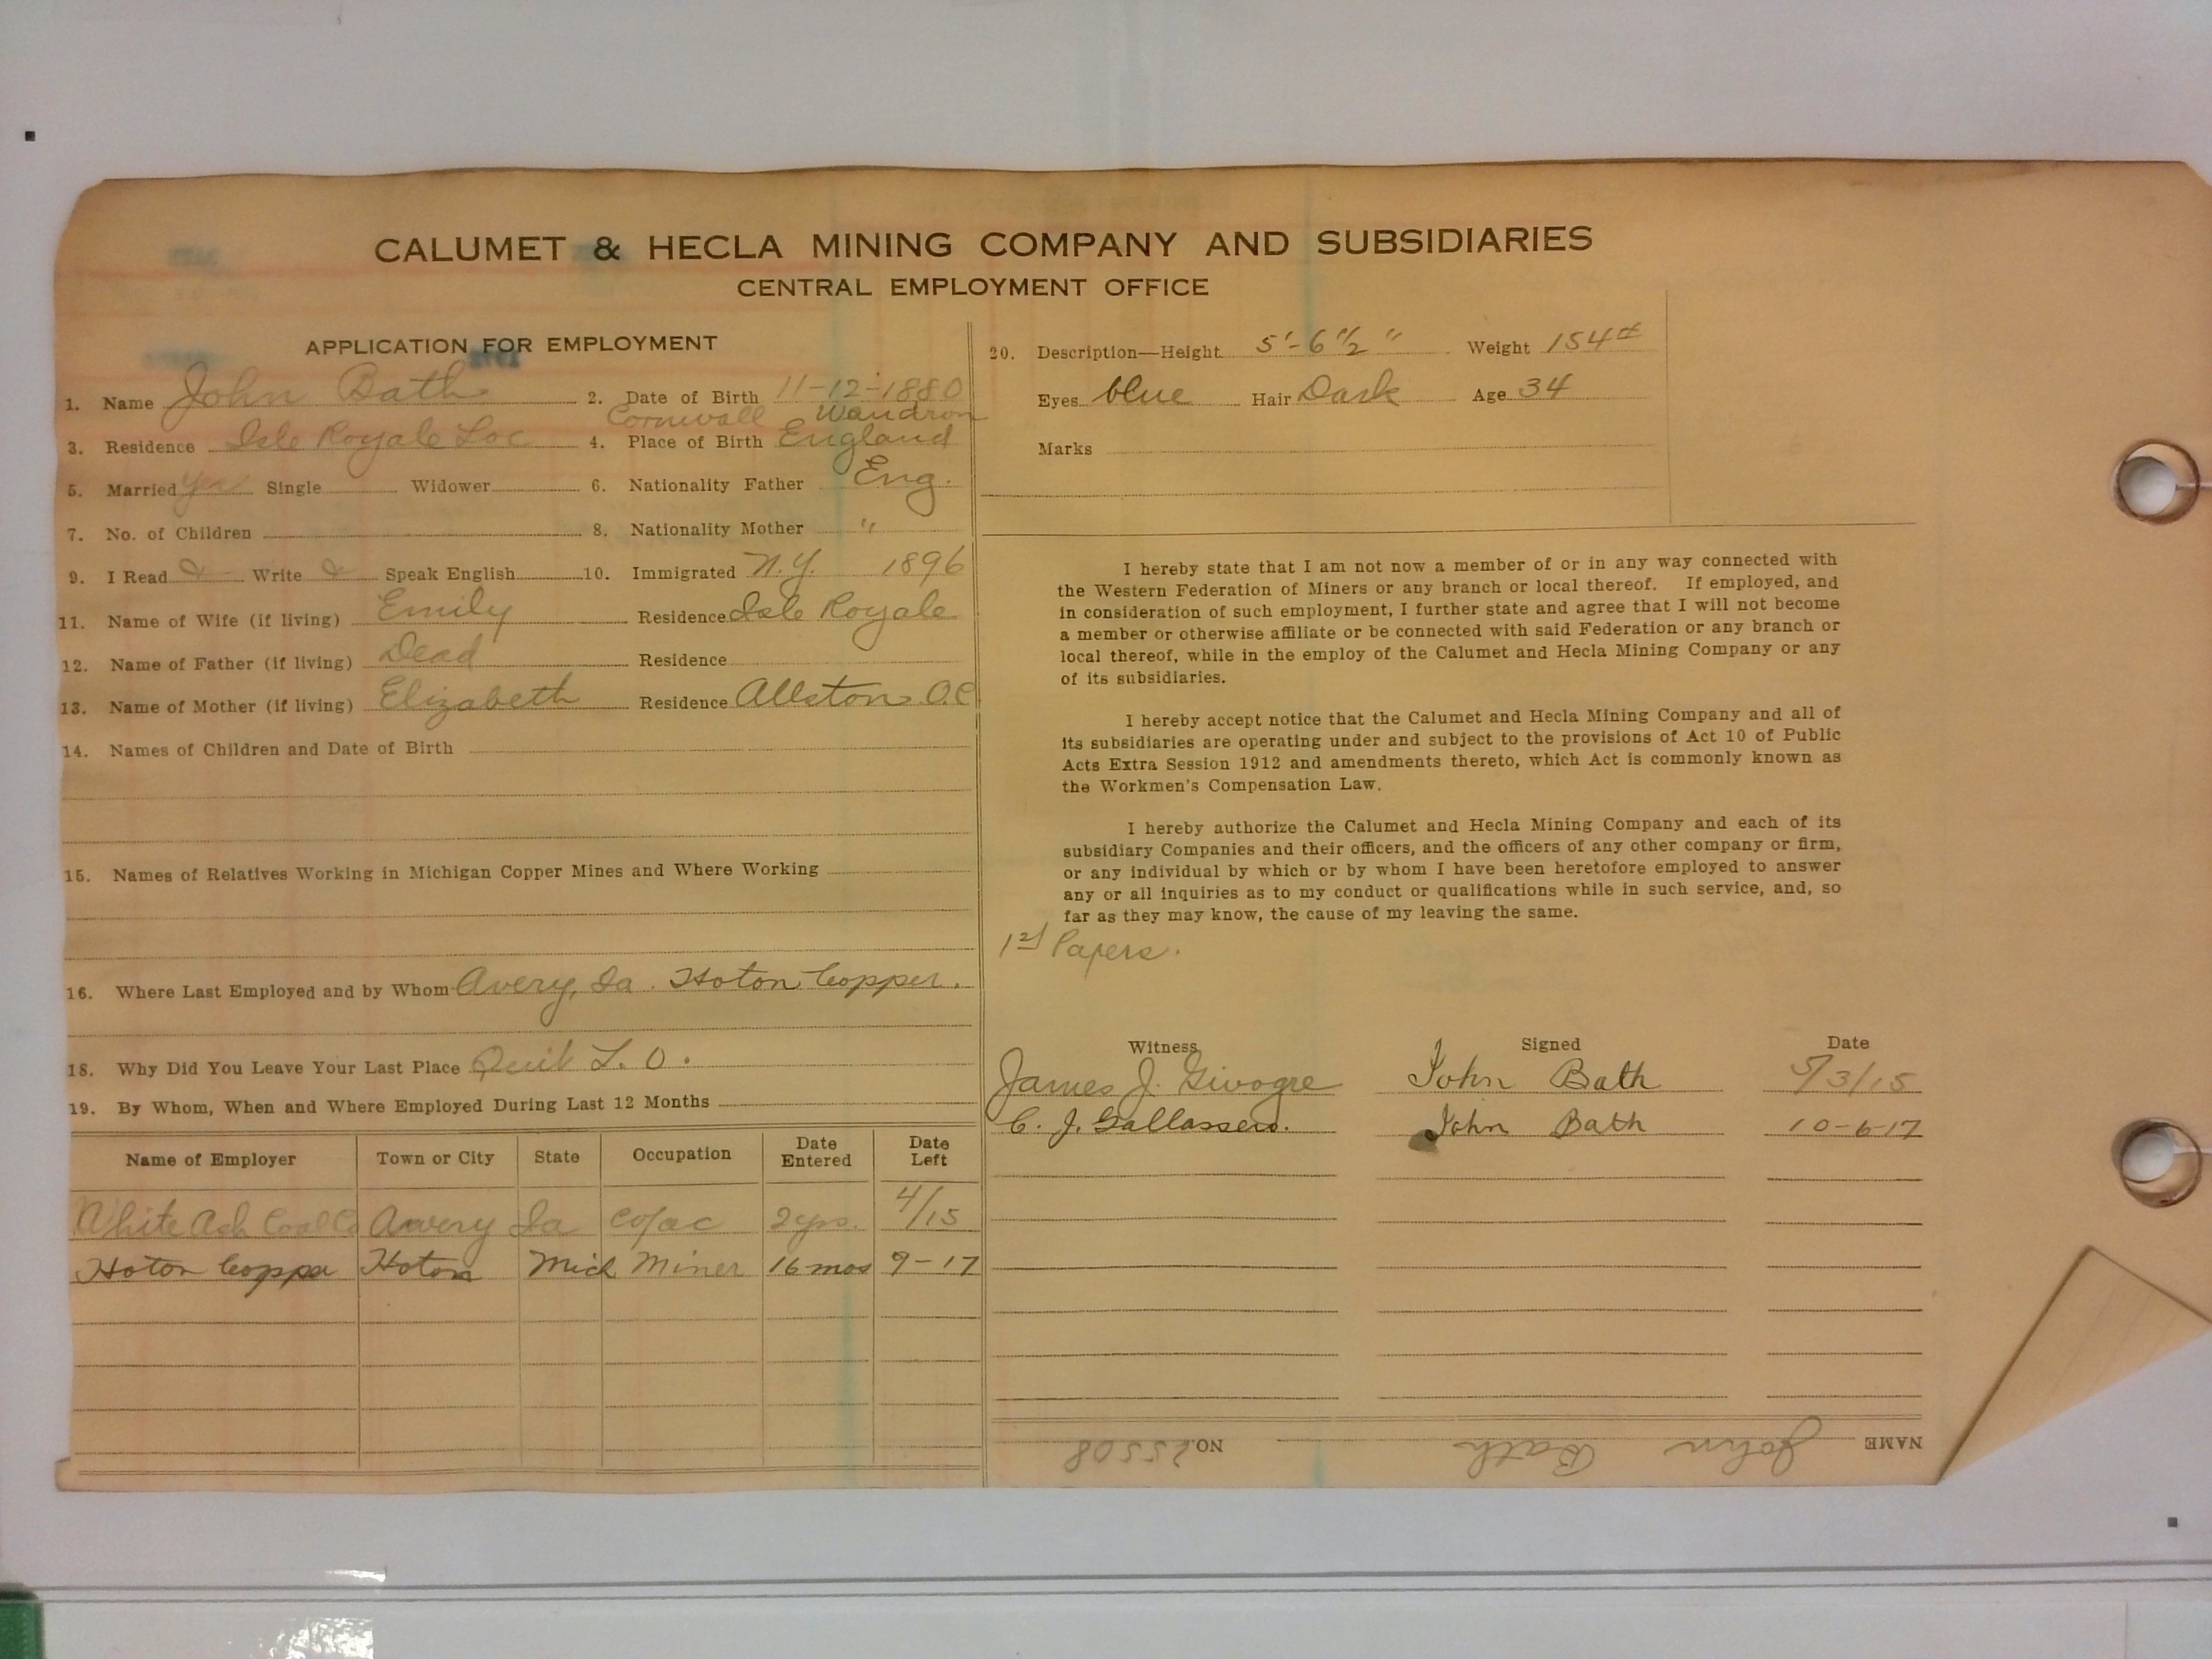 CALUMET & HECLA MINING COMPANY AND SUBSIDIARIES
CENTRAL EMPLOYMENT OFFICE
APPLICATION FOR EMPLOYMENT
1. Name John Bath 2. Date of Birth 11-12-1880
Cornwall Wendron
3. Residence Isle Royale Loc 4. Place of Birth England
5. Married Yes Single Widower 6. Nationality Father Eng.
7. No. of Children 8. Nationality Mother "
9. I Read & Write & Speak English 10. Immigrated N.Y. 1896
11. Name of Wife (if living) Emily Residence Isle Royale
12. Name of Father (if living) Dead Residence
13. Name of Mother (if living) Elizabeth Residence Allston
14. Names of Children and Date of Birth
15. Names of Relatives Working in Michigan Copper Mines and Where Working
16. Where Last Employed and by Whom Avery, Ia. Hoton Copper.
18. Why Did You Leave Your Last Place Quit
19. By Whom, When and Where Employed During Last 12 Months
Name of Employer Town or City State Occupation Date Entered Date Left
White Ash Coal Co Avery Ia 2 yrs. 4/15
Hoton Copper Hoton Mich Miner 16 mos 9-17
20. Description—Height 5'-6 1/2" Weight 154#
Eyes blue Hair Dark Age 34
Marks
I hereby state that I am not now a member of or in any way connected with
the Western Federation of Miners or any branch or local thereof. If employed, and
in consideration of such employment, I further state and agree that I will not become
a member or otherwise affiliate or be connected with said Federation or any branch or
local thereof, while in the employ of the Calumet and Hecla Mining Company or any
of its subsidiaries.
I hereby accept notice that the Calumet and Hecla Mining Company and all of
its subsidiaries are operating under and subject to the provisions of Act 10 of Public
Acts Extra Session 1912 and amendments thereto, which Act is commonly known as
the Workmen's Compensation Law.
I hereby authorize the Calumet and Hecla Mining Company and each of its
subsidiary Companies and their officers, and the officers of any other company or firm,
or any individual by which or by whom I have been heretofore employed to answer
any or all inquiries as to my conduct or qualifications while in such service, and, so
far as they may know, the cause of my leaving the same.
1st Papers.
Witness Signed Date
James J. John Bath 5/3/15
C. J. John Bath 10-6-17
NAME John Bath NO. 25508